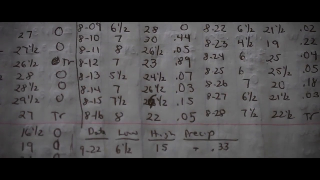 27 0 8-09 6½ 28 0 8-22 6½ 21½ .02
27½ 0 8-10 7 20 .44 8-23 4½ 19 .22
26½ Tr 8-11 8 26½ .05 8-24 6 25 .04
28 0 8-12 7 23 .89 8-25 6 21½ .05
28½ 0 8-13 5½ 24½ .07 8-26 7 20 .18
29½ 0 8-14 7 26½ .03 8-27 6½ 21½ .03
27 Tr 8-15 7½ 26½ .15 8-28 7½ 22½ Tr
8-16 8 22 .05
16½ 0 Date Low High Precip
19 0 9-22 6½ 15 .33